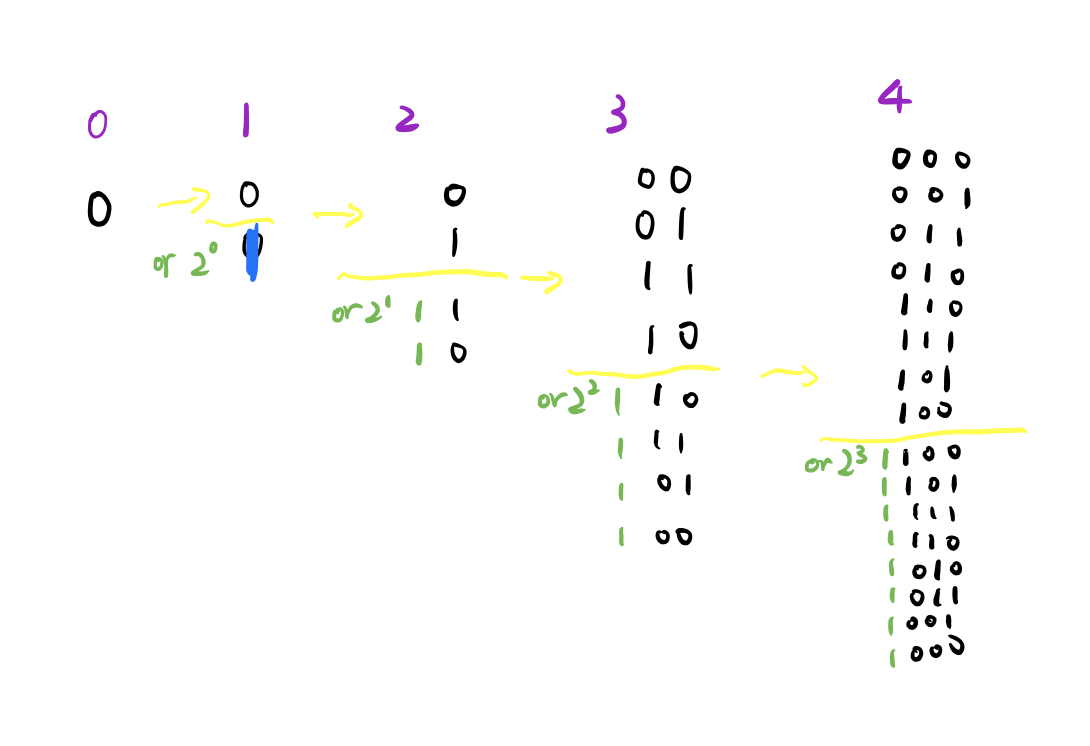 0 1 2 3 4
0
0
or 2⁰
0
1
or 2¹ 1 1
1 0
0 0
0 1
1 1
1 0
or 2² 1 1 0
1 1 1
1 0 1
1 0 0
0 0 0
0 0 1
0 1 1
0 1 0
1 1 0
1 1 1
1 0 1
1 0 0
or 2³ 1 1 0 0
1 1 0 1
1 1 1 1
1 1 1 0
1 0 1 0
1 0 1 1
1 0 0 1
1 0 0 0